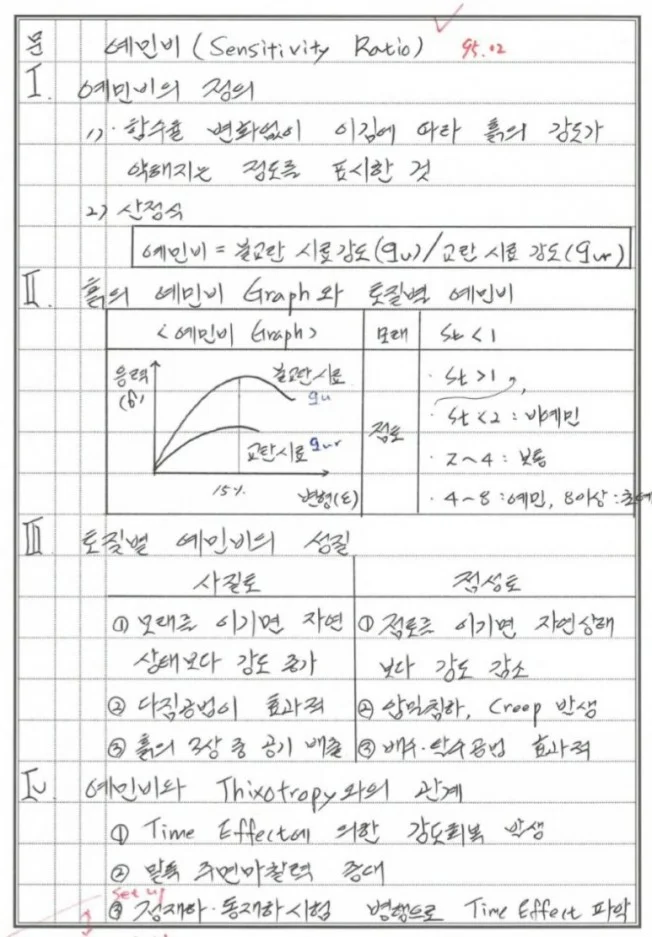 문 예민비 (Sensitivity Ratio) 95.02
Ⅰ. 예민비의 정의
1) · 함수율 변화없이 이김에 따라 흙의 강도가
약해지는 정도를 표시한 것
2) 산정식
예민비 = 불교란 시료강도(qu)/교란 시료 강도(qur)
Ⅱ. 흙의 예민비 Graph와 토질별 예민비
<예민비 Graph> 모래 St < 1
응력 불교란시료 · St > 1,
(σ) qu · St < 2 : 비예민
점토
교란시료 qur · 2~4 : 보통
15%. 변형(ε) · 4~8 : 예민, 8이상 : 초예
Ⅲ 토질별 예민비의 성질
사질토 점성토
① 모래를 이기면 자연 ① 점토를 이기면 자연상태
상태보다 강도 증가 보다 강도 감소
② 다짐공법이 효과적 ② 압밀침하, Creep 발생
③ 흙의 3상 중 공기 배출 ③ 배수·탈수공법 효과적
Ⅳ. 예민비와 Thixotropy와의 관계
① Time Effect에 의한 강도회복 발생
② 말뚝 주면마찰력 증대
Set up
③ 정재하·동재하시험 병행으로 Time Effect 파악